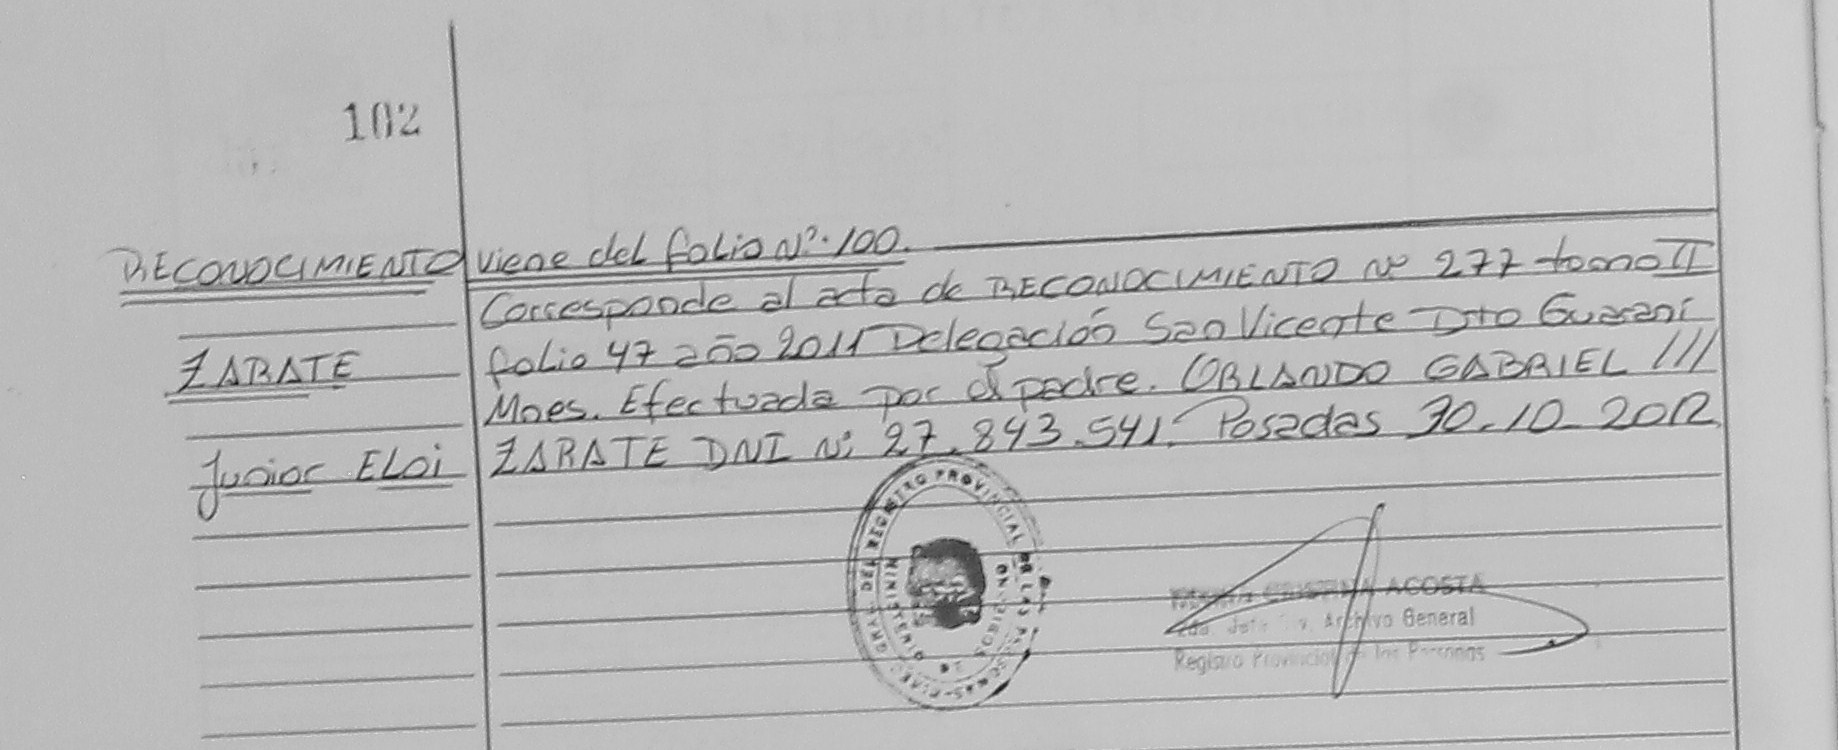 102
RECONOCIMIENTO viene del folio Nº. 100.
Corresponde al acta de RECONOCIMIENTO Nº 277 tomo II
folio 47 año 2011 Delegación San Vicente Dto Guaraní
ZARATE
Mnes. Efectuada por el padre. ORLANDO GABRIEL ///
Junior ELoi
ZARATE DNI Nº 27.843.541. Posadas 30-10-2012
DEL REGISTRO PROVINCIAL DE LAS
MINISTERIO DE
CRISTINA ACOSTA
2da. Jefe Archivo General
Registro Provincial de las Personas